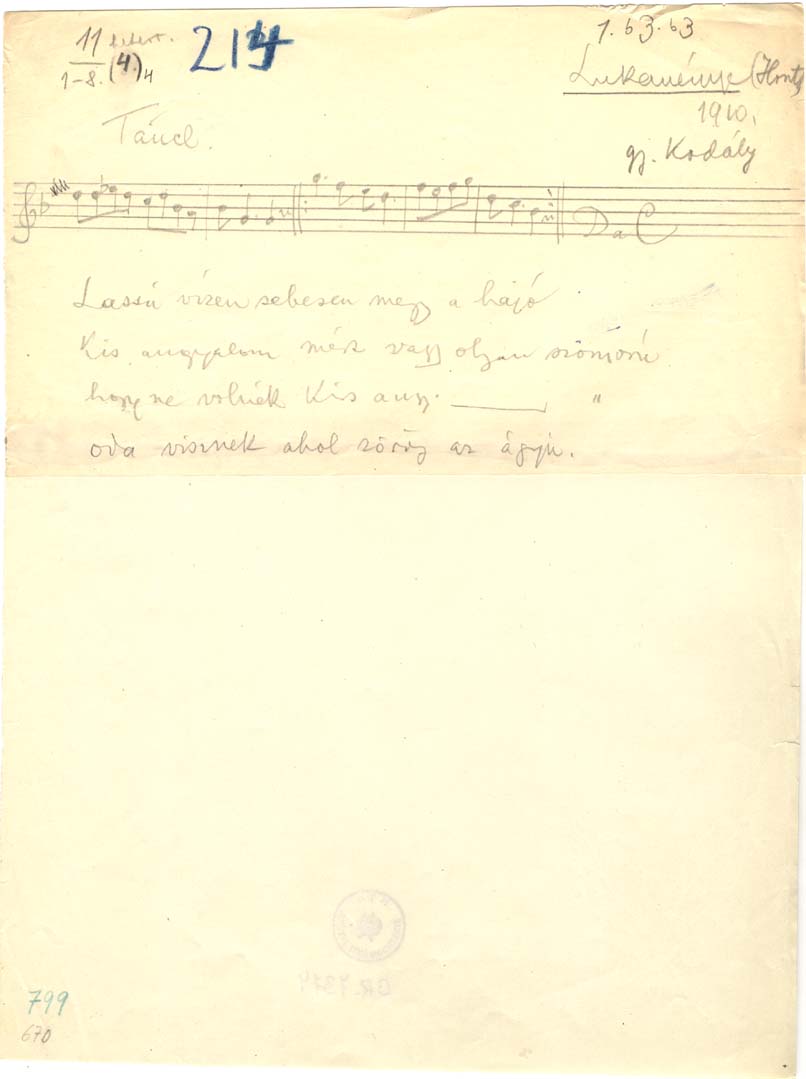 11
1-8. (4.) 4
214
1. b3. b3
Lukanénye (Hont)
1910.
gj. Kodály
Táncl.
Da C
Lassú vizen sebesen megy a hájó
Kis angyalom mért vagy olyan szomorú
hogy ne volnék Kis angy. ——— "
oda visznek ahol zörög az ágyú.
GR. 7314
799
670